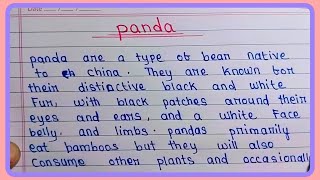 Date / /
panda
panda are a type of bear native
to ch china. They are known for
their distinctive black and white
Fur, with black patches around their
eyes and ears, and a white face
belly. and limbs. pandas primarily
eat bamboos but they will also
Consume other plants and occasionall